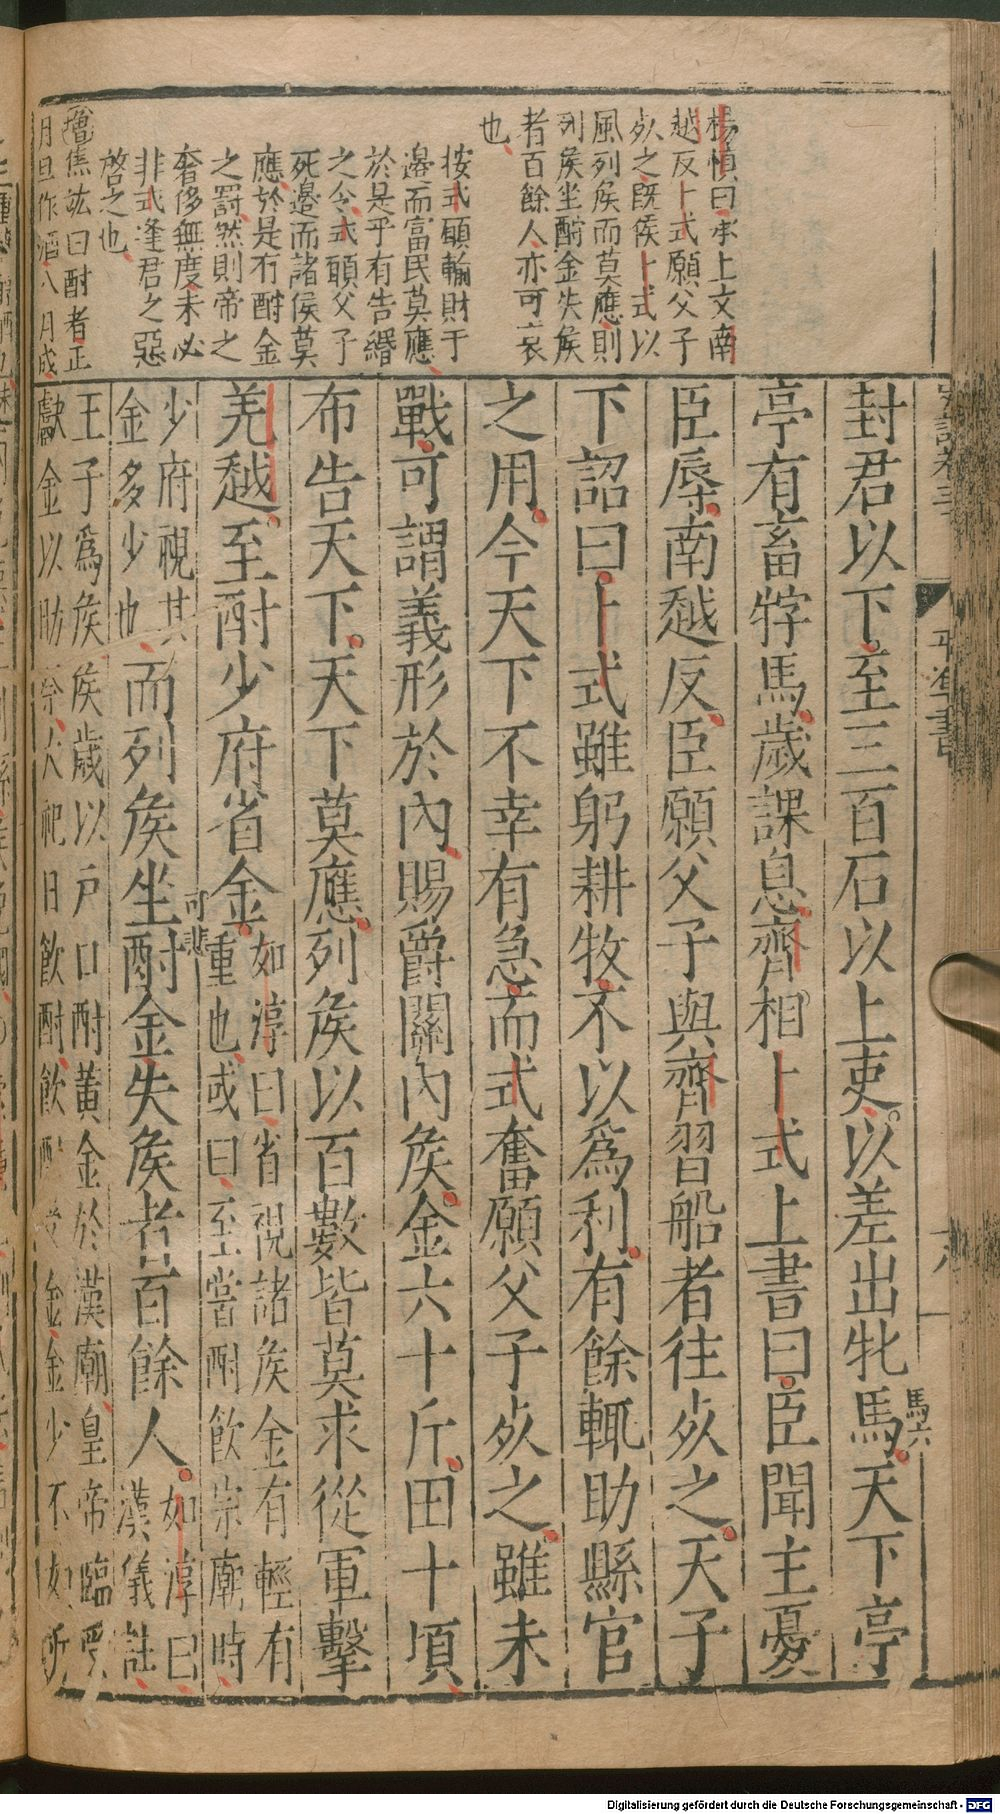 楊慎曰承上文南
越反卜式願父子
死之既侯卜式以
風列侯而莫應則
列侯坐酎金失侯
者百餘人亦可哀
也
按式願輸財于
邊而富民莫應
於是乎有告緡
之令式願父子
死邊而諸侯莫
應於是有酎金
之罰然則帝之
奢侈無度未必
非式逢君之惡
啓之也
增焦竑曰酎者正
月旦作酒八月成
平準書
六
封君以下至三百石以上吏以差出牝馬天下亭
馬六
亭有畜牸馬歲課息齊相卜式上書曰臣聞主憂
臣辱南越反臣願父子與齊習船者往死之天子
下詔曰卜式雖躬耕牧不以為利有餘輒助縣官
之用今天下不幸有急而式奮願父子死之雖未
戰可謂義形於內賜爵關內侯金六十斤田十頃
布告天下天下莫應列侯以百數皆莫求從軍擊
羌越至酎少府省金
如淳曰省視諸侯金有輕有
重也或曰至嘗酎飲宗廟時
可悲
少府視其
金多少也
而列侯坐酎金失侯者百餘人
如淳曰
漢儀註
王子為侯侯歲以戶口酎黃金於漢廟皇帝臨受
獻金以助祭大祀日飲酎飲酎受金金少不如所
Digitalisierung gefördert durch die Deutsche Forschungsgemeinschaft - DFG